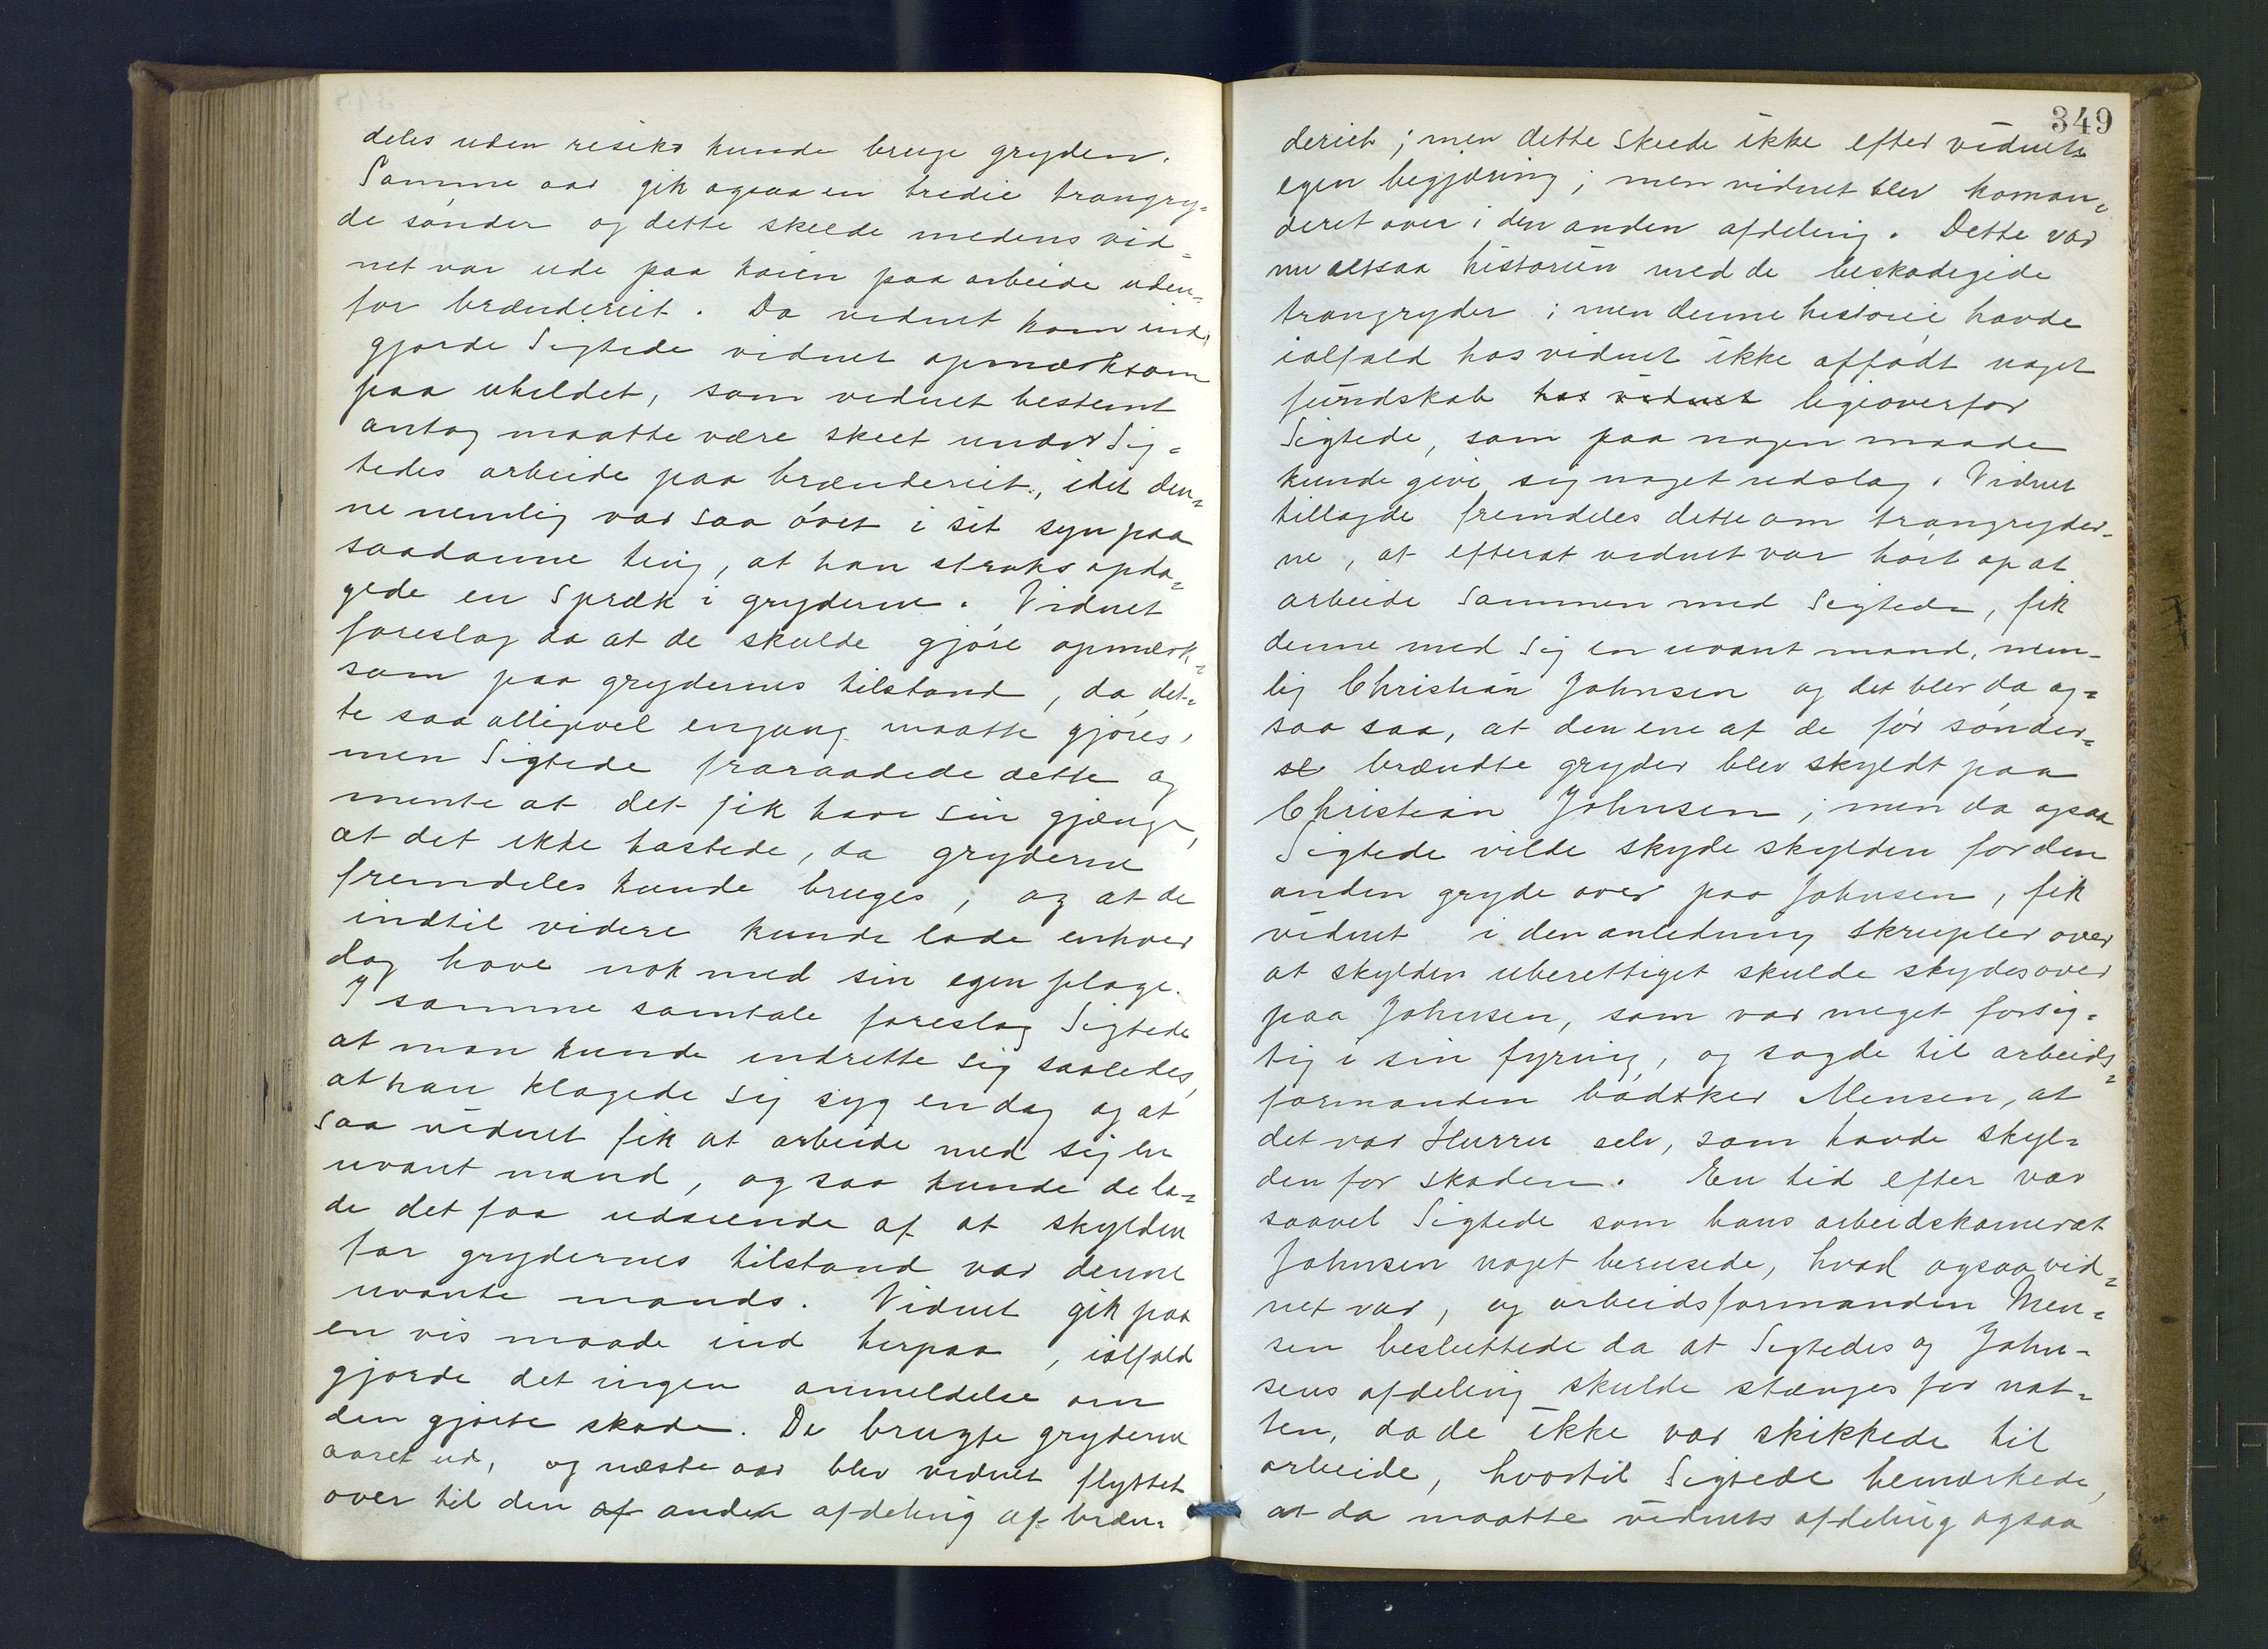 deles uden risiko kunde bruge gryden.
Samme aar gik ogsaa en tredie trangry=
de sønder og dette skeede medens vid=
net var ude paa kaien paa arbeide uden=
for brænderiet. Da vidnet kom ind,
gjorde Sigtede vidnet opmærksom
paa uheldet, som vidnet bestemt
antog maatte være skeet under Sig=
tedes arbeide paa brænderiet, idet den=
ne nemlig var saa øvet i sit syn paa
saadanne ting, at han straks opda=
gede en Spræk i gryderne. Vidnet
foreslog da at de skulde gjøre opmærk=
som paa grydernes tilstand, da det=
te saa alligevel engang maatte gjøres,
men Sigtede fraraadede dette og
mente at det fik have sin gjænge,
at det ikke hastede, da gryderne
fremdeles kunde bruges, og at de
indtil videre kunde lade enhver
dag have nok med sin egen plage.
I samme samtale foreslog Sigtede
at man kunde indrette sig saaledes,
at han klagede sig syg en dag og at
saa vidnet fik at arbeide med sig en
uvant mand, og saa kunde de la=
de det faa udseende af at skylden
for grydernes tilstand var denne
uvante mands. Vidnet gik paa
en vis maade ind herpaa, ialfald
gjorde det ingen anmeldelse om
den gjorte skade. De brugte gryderne
aaret ud, og næste aar blev vidnet flyttet
over til den af anden afdeling af bræn=
349
deriet; men dette skeede ikke efter vidnets
egen begjæring; men vidnet blev koman=
deret over i den anden afdeling. Dette var
nu altsaa historien med de beskadigede
trangryder; men denne historie havde
ialfald hos vidnet ikke affødt noget
fiendskab hos vidnet ligeoverfor
Sigtede, som paa nogen maade
kunde give sig noget udslag. Vidnet
tillagde fremdeles dette om trangryder=
ne, at efterat vidnet var hørt op at
arbeide sammen med Sigtede, fik
denne med sig en uvant mand, nem=
lig Christian Johnsen og det blev da og=
saa saa, at den ene af de før sønder=
brændte gryder blev skyldt paa
Christian Johnsen; men da ogsaa
Sigtede vilde skyde skylden for den
anden gryde over paa Johnsen, fik
vidnet i den anledning skrupler over
at skylden uberettiget skulde skydes over
paa Johnsen, som var meget forsig=
tig i sin fyring, og sagde til arbeids=
formanden bødker Mensen, at
det var Hurru selv, som havde skyl=
den for skaden. En tid efter var
saavel Sigtede som hans arbeidskamerat
Johnsen noget berusede, hvad ogsaa vid=
net var, og arbeidsformanden Men=
sen besluttede da at Sigtedes og John=
sens afdeling skulde stænges for nat=
ten, da de ikke var skikkede til
arbeide, hvortil Sigtede bemærkede,
at da maatte vidnets afdeling ogsaa